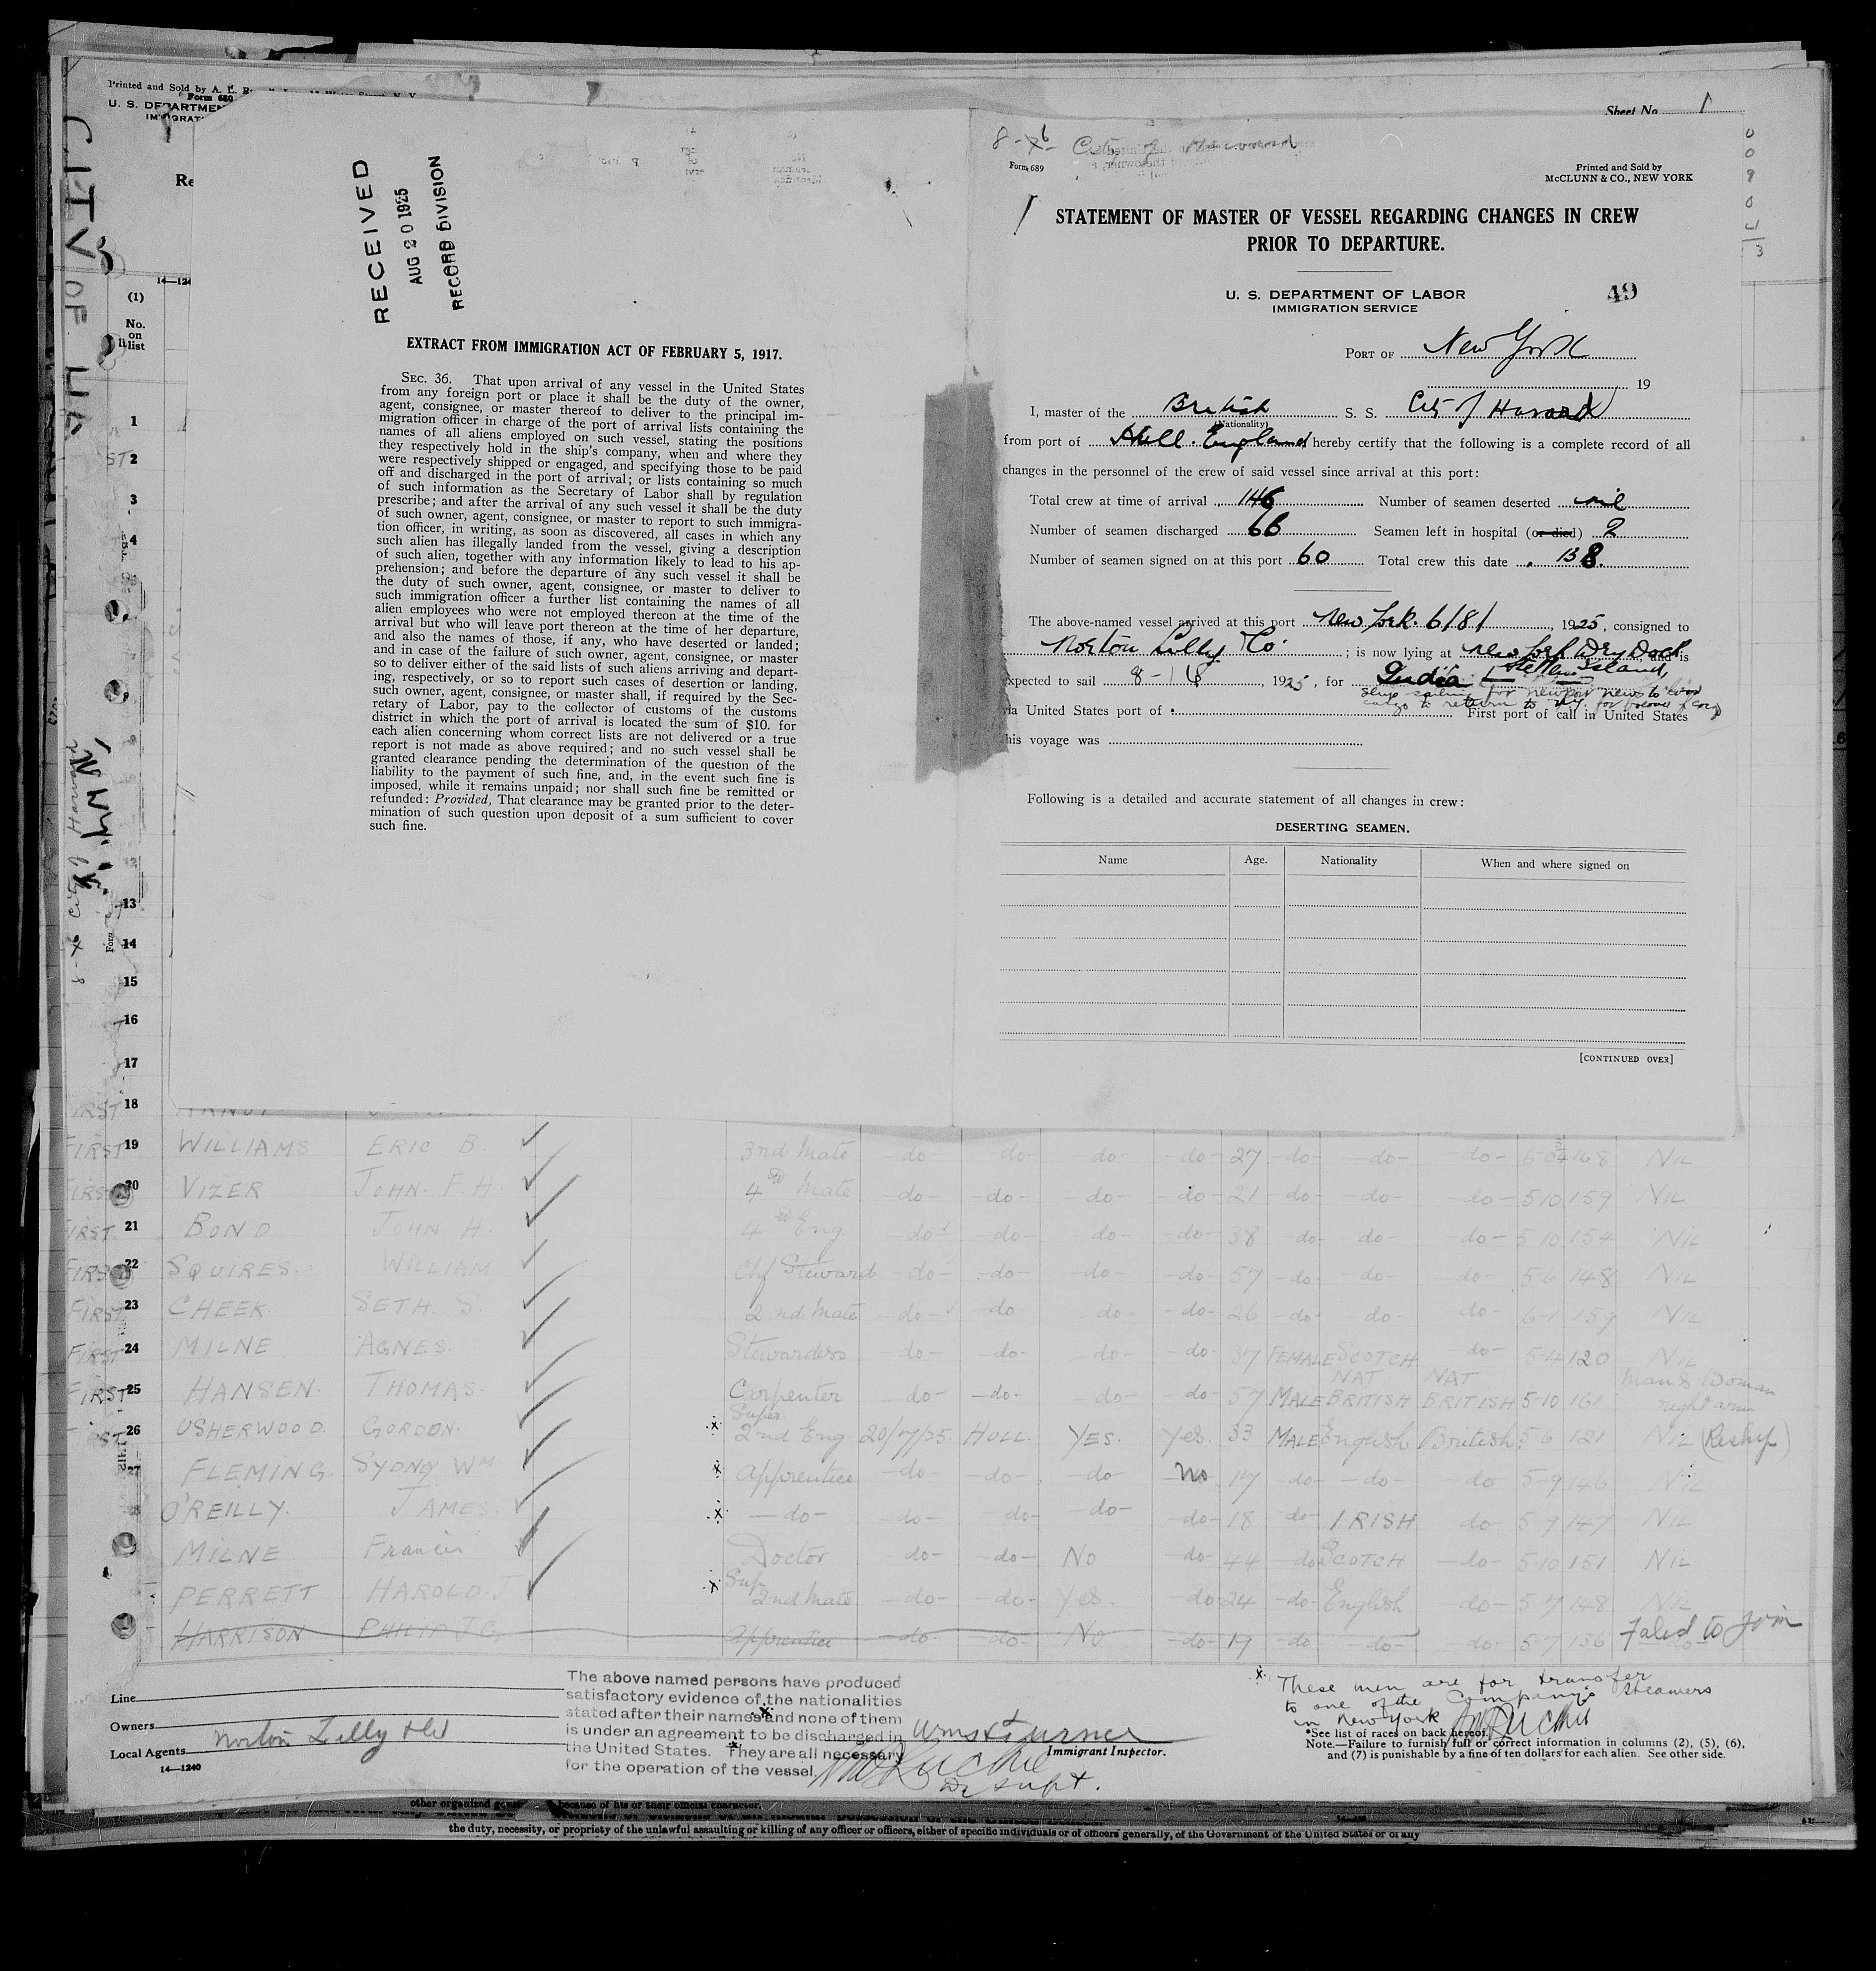 Printed and Sold by A.
Form 680
U. S. DEPARTMEN
IMMIGRAT
Re
CITY OF HA
14—124
(1)
No.
on
list
1
2
3
4
13
14
15
16
17
18
RECEIVED
AUG 20 1925
RECORD DIVISION
EXTRACT FROM IMMIGRATION ACT OF FEBRUARY 5, 1917.
SEC. 36. That upon arrival of any vessel in the United States
from any foreign port or place it shall be the duty of the owner,
agent, consignee, or master thereof to deliver to the principal im-
migration officer in charge of the port of arrival lists containing the
names of all aliens employed on such vessel, stating the positions
they respectively hold in the ship's company, when and where they
were respectively shipped or engaged, and specifying those to be paid
off and discharged in the port of arrival; or lists containing so much
of such information as the Secretary of Labor shall by regulation
prescribe; and after the arrival of any such vessel it shall be the duty
of such owner, agent, consignee, or master to report to such immigra-
tion officer, in writing, as soon as discovered, all cases in which any
such alien has illegally landed from the vessel, giving a description
of such alien, together with any information likely to lead to his ap-
prehension; and before the departure of any such vessel it shall be
the duty of such owner, agent, consignee, or master to deliver to
such immigration officer a further list containing the names of all
alien employees who were not employed thereon at the time of the
arrival but who will leave port thereon at the time of her departure,
and also the names of those, if any, who have deserted or landed;
and in case of the failure of such owner, agent, consignee, or master
so to deliver either of the said lists of such aliens arriving and depart-
ing, respectively, or so to report such cases of desertion or landing,
such owner, agent, consignee, or master shall, if required by the Sec-
retary of Labor, pay to the collector of customs of the customs
district in which the port of arrival is located the sum of $10. for
each alien concerning whom correct lists are not delivered or a true
report is not made as above required; and no such vessel shall be
granted clearance pending the determination of the question of the
liability to the payment of such fine, and, in the event such fine is
imposed, while it remains unpaid; nor shall such fine be remitted or
refunded: Provided, That clearance may be granted prior to the deter-
mination of such question upon deposit of a sum sufficient to cover
such fine.
Sheet No. 1
Form 689
Printed and Sold by
McCLUNN & CO., NEW YORK
STATEMENT OF MASTER OF VESSEL REGARDING CHANGES IN CREW
PRIOR TO DEPARTURE.
U. S. DEPARTMENT OF LABOR
IMMIGRATION SERVICE
49
PORT OF New York
19
I, master of the British S. S. City of Harvard
(Nationality)
from port of Hull. England hereby certify that the following is a complete record of all
changes in the personnel of the crew of said vessel since arrival at this port:
Total crew at time of arrival 146 Number of seamen deserted nil
Number of seamen discharged 66 Seamen left in hospital (or died) 2
Number of seamen signed on at this port 60 Total crew this date 138.
The above-named vessel arrived at this port New York. 6/8/ , 1925, consigned to
Norton Lilly & Co ; is now lying at New York Dry Dock and is
Staten Island,
expected to sail 8-16 , 1925, for India
via United States port of First port of call in United States
this voyage was
Following is a detailed and accurate statement of all changes in crew:
DESERTING SEAMEN.
Name Age. Nationality When and where signed on
[CONTINUED OVER]
FIRST 19 WILLIAMS ERIC B. 3rd Mate -do- -do- -do- -do- 27 -do- -do- -do- 168 NIL
FIRST 20 VIZER JOHN. F. H. 4th Mate -do- -do- -do- -do- 21 -do- -do- -do- 5-10 159 NIL
FIRST 21 BOND JOHN H. 4th Eng -do- -do- -do- -do- 38 -do- -do- -do- 5-10 154 NIL
FIRST 22 SQUIRES. WILLIAM Chf Steward -do- -do- -do- -do- 57 -do- -do- -do- 5-6 148 NIL
FIRST 23 CHEEK. SETH. S. 2nd Mate -do- -do- -do- -do- 26 -do- -do- -do- 6-1 159 NIL
FIRST 24 MILNE AGNES. Stewardess -do- -do- -do- -do- 37 FEMALE SCOTCH -do- 5-4 120 NIL
FIRST 25 HANSEN. THOMAS. Carpenter -do- -do- -do- -do- 57 MALE NAT BRITISH NAT BRITISH 5-10 161 Man & Woman right arm
26 USHERWOOD. GORDON. x Super 2nd Eng 20/7/25 HULL. YES. Yes. 33 MALE English British 5-6 121 NIL (Reship)
27 FLEMING SYDNY WM x Apprentice -do- -do- -do- No 17 -do- -do- -do- 5-9 146 NIL
28 O'REILLY. JAMES. x -do- -do- -do- -do- -do- 18 -do- IRISH do 5-9 147 NIL
MILNE Francis Doctor -do- -do- No -do- 44 -do- SCOTCH -do- 5-10 151 NIL
PERRETT HAROLD. J x Sup 2nd Mate -do- -do- Yes. do 24 -do- English -do- 5-7 148 NIL
HARRISON PHILIP J G. Apprentice -do- -do- No -do- 17 -do- -do- -do- 5-7 136 Failed to Join
Line
Owners
Local Agents Norton Lilly
14—1240
The above named persons have produced
satisfactory evidence of the nationalities
stated after their names and none of them
is under an agreement to be discharged in
the United States. They are all necessary
for the operation of the vessel.
Immigrant Inspector.
x These men are for transfer
to one of the Company's steamers
in New York
*See list of races on back hereof.
Note.—Failure to furnish full or correct information in columns (2), (5), (6),
and (7) is punishable by a fine of ten dollars for each alien. See other side.
the duty, necessity, or propriety of the unlawful assaulting or killing of any officer or officers, either of specific individuals or of officers generally, of the Government of the United States or of any